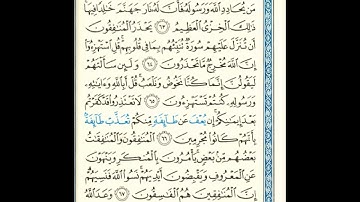 مَن يُحَادِدِ ٱللَّهَ وَرَسُولَهُۥ فَأَنَّ لَهُۥ نَارَ جَهَنَّمَ خَٰلِدًا فِيهَا
ذَٰلِكَ ٱلْخِزْىُ ٱلْعَظِيمُ ٦٣ يَحْذَرُ ٱلْمُنَٰفِقُونَ
أَن تُنَزَّلَ عَلَيْهِمْ سُورَةٌ تُنَبِّئُهُم بِمَا فِى قُلُوبِهِمْ قُلِ ٱسْتَهْزِءُوٓا۟
إِنَّ ٱللَّهَ مُخْرِجٌ مَّا تَحْذَرُونَ ٦٤ وَلَئِن سَأَلْتَهُمْ
لَيَقُولُنَّ إِنَّمَا كُنَّا نَخُوضُ وَنَلْعَبُ قُلْ أَبِٱللَّهِ وَءَايَٰتِهِۦ
وَرَسُولِهِۦ كُنتُمْ تَسْتَهْزِءُونَ ٦٥ لَا تَعْتَذِرُوا۟ قَدْ كَفَرْتُم
بَعْدَ إِيمَٰنِكُمْ إِن نَّعْفُ عَن طَآئِفَةٍ مِّنكُمْ نُعَذِّبْ طَآئِفَةًۢ
بِأَنَّهُمْ كَانُوا۟ مُجْرِمِينَ ٦٦ ٱلْمُنَٰفِقُونَ وَٱلْمُنَٰفِقَٰتُ
بَعْضُهُم مِّنۢ بَعْضٍ يَأْمُرُونَ بِٱلْمُنكَرِ وَيَنْهَوْنَ
عَنِ ٱلْمَعْرُوفِ وَيَقْبِضُونَ أَيْدِيَهُمْ نَسُوا۟ ٱللَّهَ فَنَسِيَهُمْ
إِنَّ ٱلْمُنَٰفِقِينَ هُمُ ٱلْفَٰسِقُونَ ٦٧ وَعَدَ ٱللَّهُ